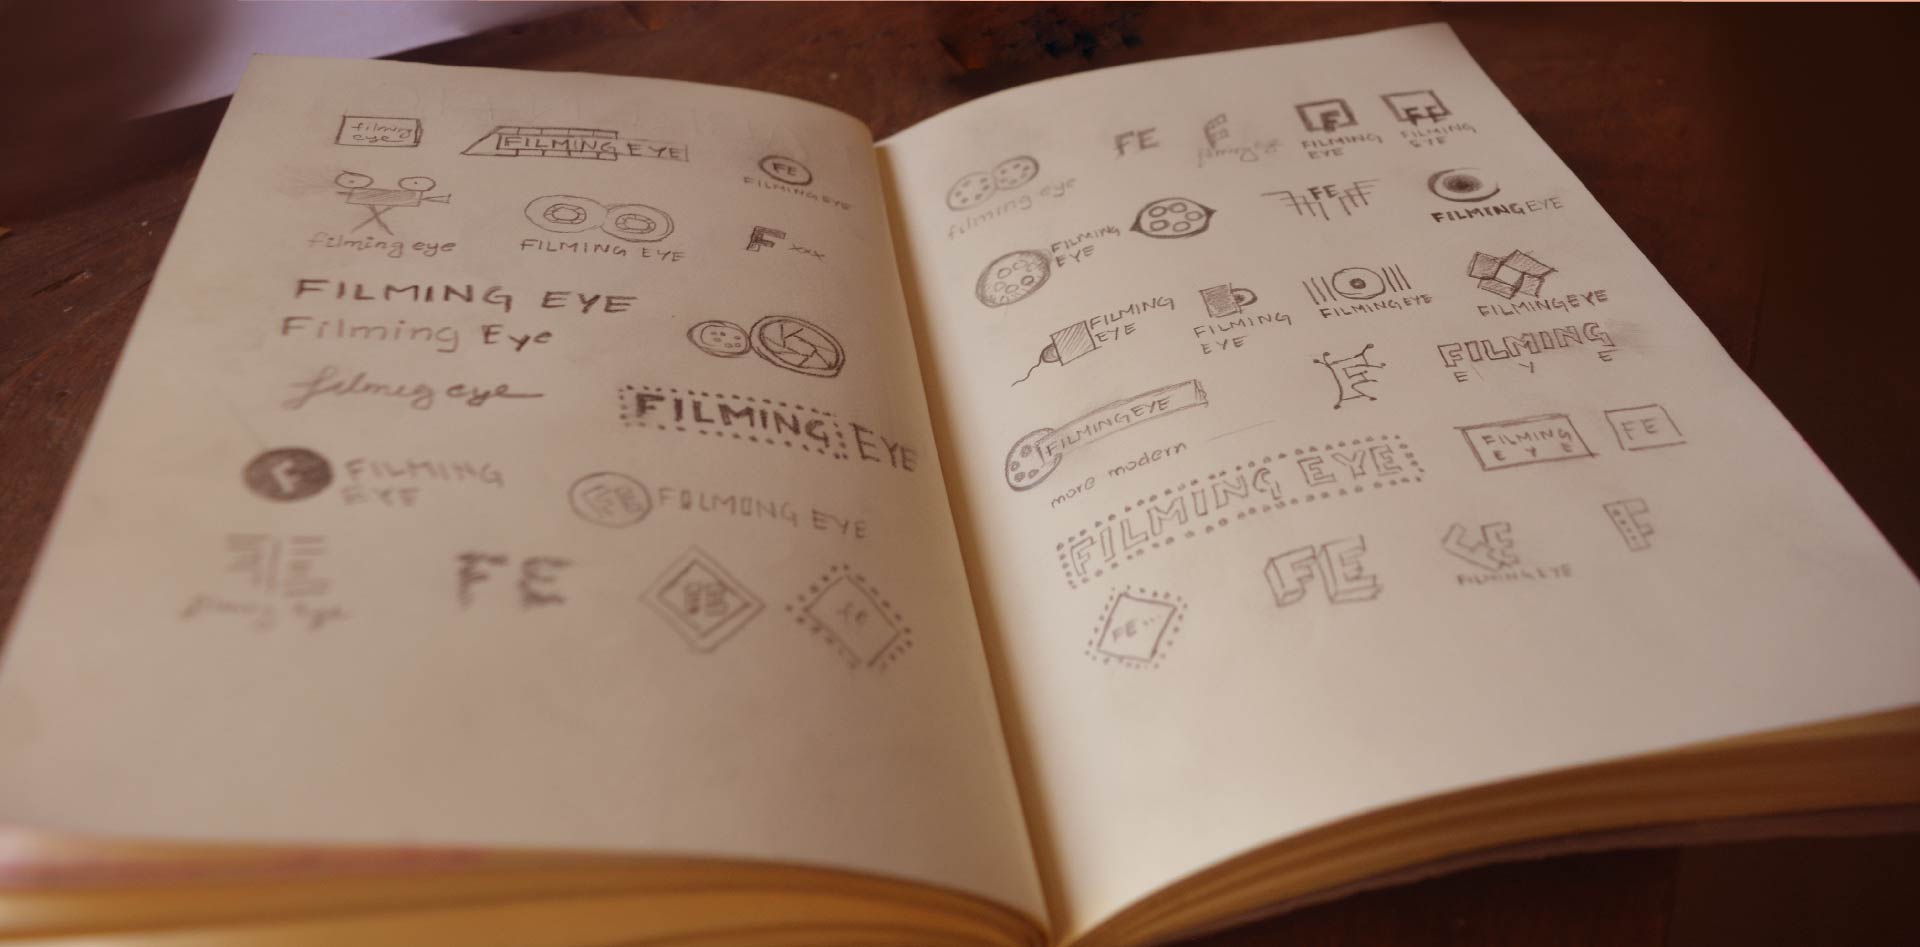 filming
eye
FILMING EYE
FE
FILMING EYE
filming eye
FILMING EYE
F xxx
FILMING EYE
Filming Eye
filmig eye
FILMING EYE
F FILMING
EYE
FE FILMING EYE
filming eye
FE
fe
filming eye
FE
F
filming eye
F
FILMING
EYE
FE
FILMING
EYE
FILMING
EYE
FE
FILMING EYE
FILMING
EYE
FILMING
EYE
FILMING EYE
FILMING EYE
FILMING EYE
more modern
FE
FILMING
E Y E
FILMING EYE
FILMING
E Y E
FE
FE...
FE
FE
FILMING EYE
F